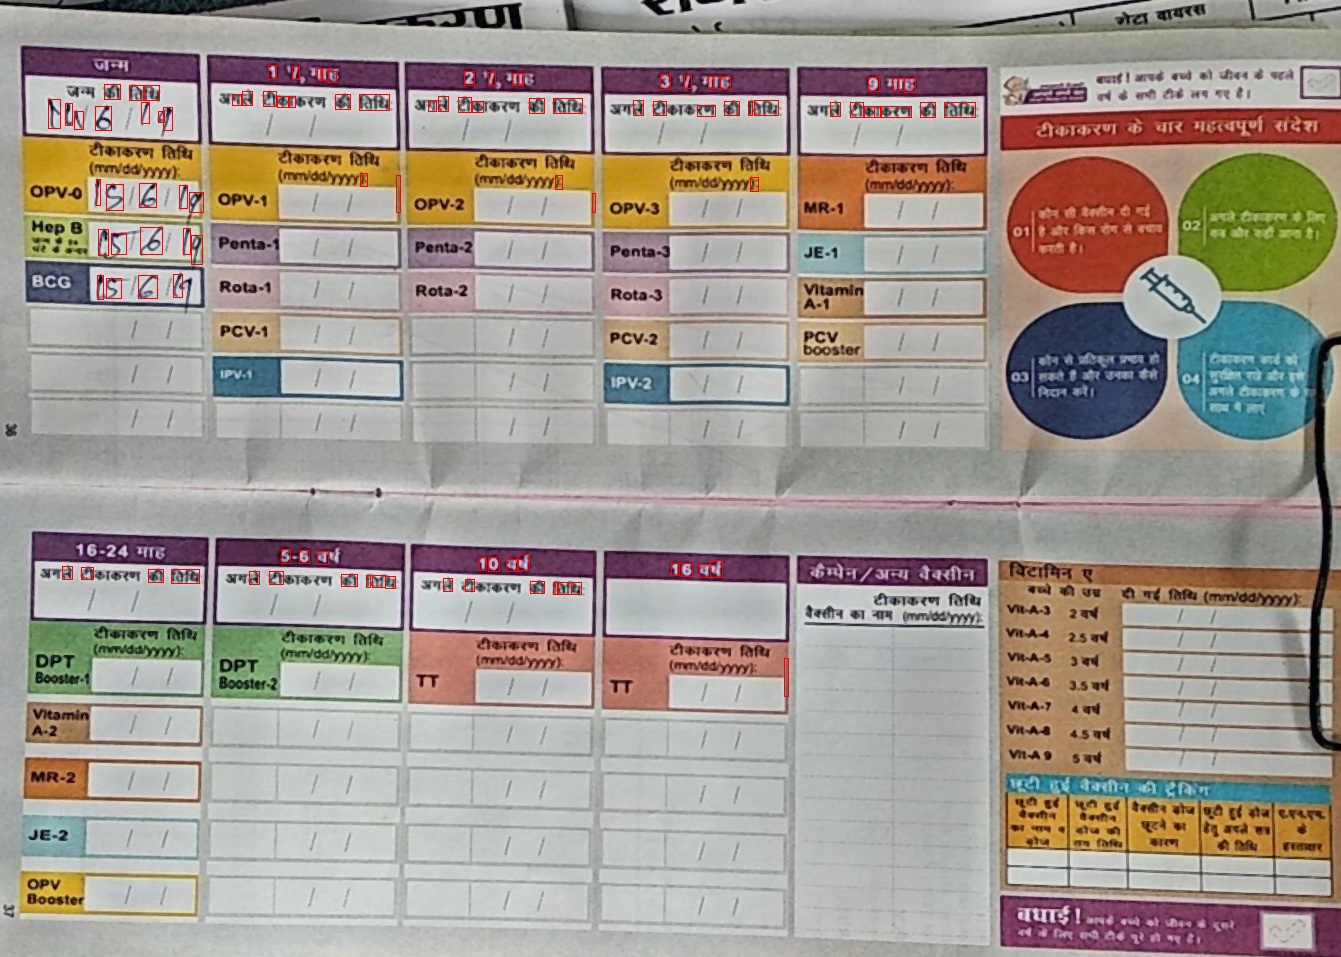 रोटा वायरस
जन्म
जन्म की तिथि
14/6/19
टीकाकरण तिथि
(mm/dd/yyyy):
OPV-0 15/6/19
Hep B
जन्म के 24
घंटे के अन्दर
15/6/19
BCG 15/6/19
1 ½ माह
अगले टीकाकरण की तिथि
/ /
टीकाकरण तिथि
(mm/dd/yyyy):
OPV-1 / /
Penta-1 / /
Rota-1 / /
PCV-1 / /
IPV-1 / /
2 ½ माह
अगले टीकाकरण की तिथि
/ /
टीकाकरण तिथि
(mm/dd/yyyy):
OPV-2 / /
Penta-2 / /
Rota-2 / /
3 ½ माह
अगले टीकाकरण की तिथि
/ /
टीकाकरण तिथि
(mm/dd/yyyy):
OPV-3 / /
Penta-3 / /
Rota-3 / /
PCV-2 / /
IPV-2 / /
9 माह
अगले टीकाकरण की तिथि
/ /
टीकाकरण तिथि
(mm/dd/yyyy):
MR-1 / /
JE-1 / /
Vitamin
A-1 / /
PCV
booster / /
बधाई! आपके बच्चे को जीवन के पहले
वर्ष के सभी टीके लग गए है।
टीकाकरण के चार महत्वपूर्ण संदेश
01
कौन सी वैक्सीन दी गई
है और किस रोग से बचाव
करती है।
02
अगले टीकाकरण के लिए
कब और कहाँ आना है।
03
कौन से प्रतिकूल प्रभाव हो
सकते हैं और उनका कैसे
निदान करें।
04
टीकाकरण कार्ड को
सुरक्षित रखें और इसे
अगले टीकाकरण के
साथ में लाएं
36
16-24 माह
अगले टीकाकरण की तिथि
/ /
टीकाकरण तिथि
(mm/dd/yyyy):
DPT
Booster-1 / /
Vitamin
A-2 / /
MR-2 / /
JE-2 / /
OPV
Booster / /
5-6 वर्ष
अगले टीकाकरण की तिथि
/ /
टीकाकरण तिथि
(mm/dd/yyyy):
DPT
Booster-2 / /
10 वर्ष
अगले टीकाकरण की तिथि
/ /
टीकाकरण तिथि
(mm/dd/yyyy):
TT / /
16 वर्ष
टीकाकरण तिथि
(mm/dd/yyyy):
TT / /
कैम्पेन/अन्य वैक्सीन
टीकाकरण तिथि
वैक्सीन का नाम (mm/dd/yyyy):
विटामिन ए
बच्चे की उम्र दी गई तिथि (mm/dd/yyyy):
Vit-A-3 2 वर्ष / /
Vit-A-4 2.5 वर्ष / /
Vit-A-5 3 वर्ष / /
Vit-A-6 3.5 वर्ष / /
Vit-A-7 4 वर्ष / /
Vit-A-8 4.5 वर्ष / /
Vit-A 9 5 वर्ष / /
छूटी हुई वैक्सीन की ट्रैकिंग
छूटी हुई वैक्सीन का नाम व डोज
छूटी हुई डोज की तय तिथि
वैक्सीन डोज छूटने का कारण
छूटी हुई डोज हेतु अगले सत्र की तिथि
ए.एन.एम. के हस्ताक्षर
बधाई! आपके बच्चे को जीवन के दूसरे
वर्ष के लिए सभी टीके पूरे हो गए है।
37